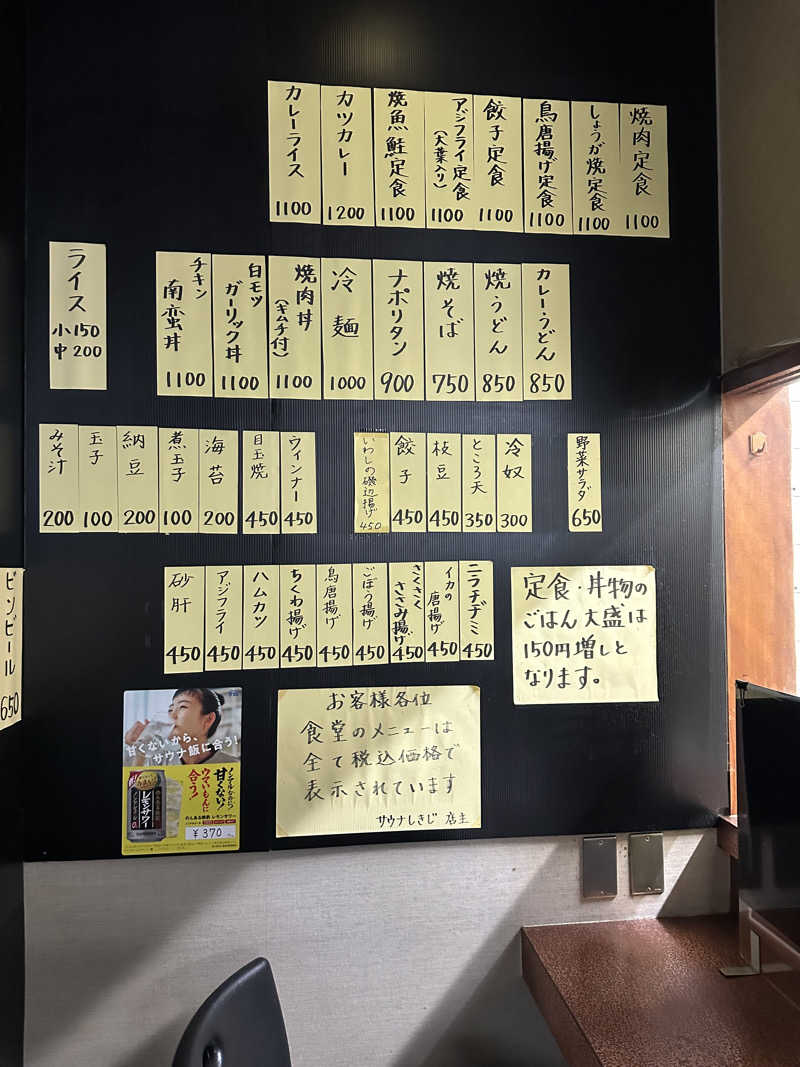 焼肉定食 1100
しょうが焼定食 1100
鳥唐揚げ定食 1100
餃子定食 1100
アジフライ定食
(大葉入り)
1100
焼魚鮭定食 1100
カツカレー 1200
カレーライス 1100
カレーうどん 850
焼うどん 850
焼そば 750
ナポリタン 900
冷麺 1000
焼肉丼
(キムチ付)
1100
白モツ
ガーリック丼
1100
チキン
南蛮丼
1100
ライス
小150
中200
野菜サラダ 650
冷奴 300
ところ天 350
枝豆 450
餃子 450
いわしの磯辺揚げ 450
ウィンナー 450
目玉焼 450
海苔 200
煮玉子 100
納豆 200
玉子 100
みそ汁 200
ニラチヂミ 450
イカの
唐揚げ
450
さくさく
ささみ揚げ
450
ごぼう揚げ 450
鳥唐揚げ 450
ちくわ揚げ 450
ハムカツ 450
アジフライ 450
砂肝 450
ビンビール 650
定食・丼物の
ごはん大盛は
150円増しと
なります。
お客様各位
食堂のメニューは
全て税込価格で
表示されています
サウナしきじ 店主
甘くないから、
サウナ飯に合う!
ノンアルなのに?
甘くない!
ウマいもんに
合う!
レモンサワー
のんある晩酌 レモンサワー
¥370